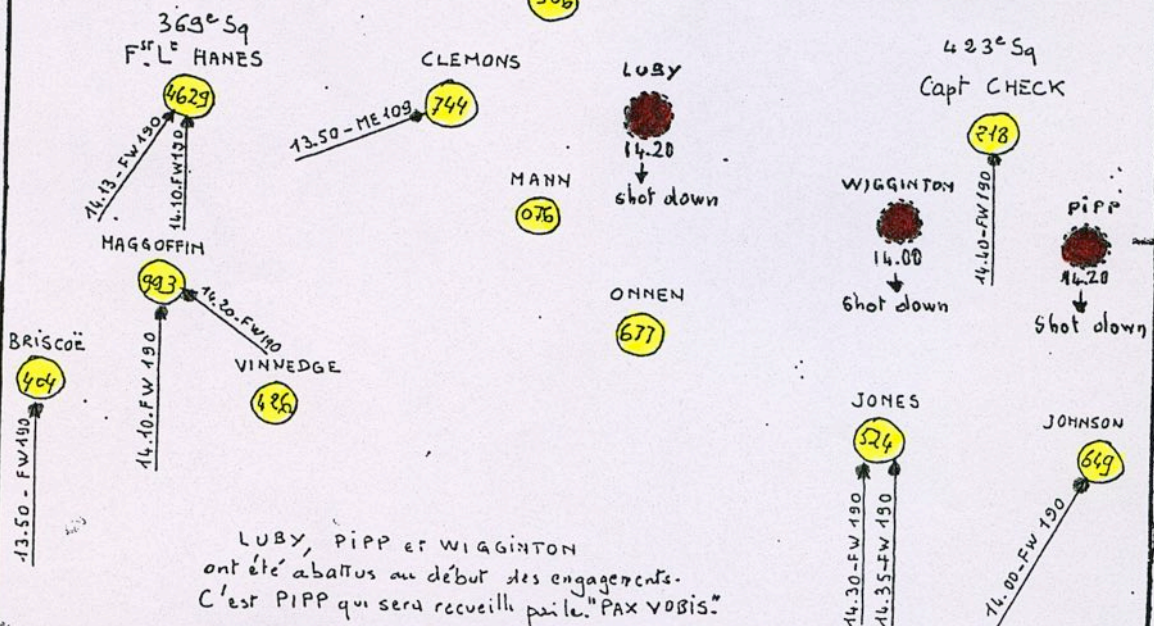 369e Sq
Fst. Lt HANES
4629
14.13-FW190
14.10.FW190
CLEMONS
744
13.50-ME109
LUBY
14.20
shot down
MANN
076
423e Sq
Capt CHECK
218
14.40-FW190
WIGGINTON
14.00
Shot down
PiPP
14.20
Shot down
MAGGOFFIN
993
14.20-FW190
14.10.FW 190
ONNEN
677
BRiSCOË
404
13.50 - FW190
VINNEDGE
426
JONES
524
14.30-FW 190
14.35-FW 190
JOHNSON
649
14.00-FW 190
LUBY, PiPP et WIGGINTON
ont été abattus au début des engagements.
C'est PIPP qui sera recueilli par le "PAX VOBIS".